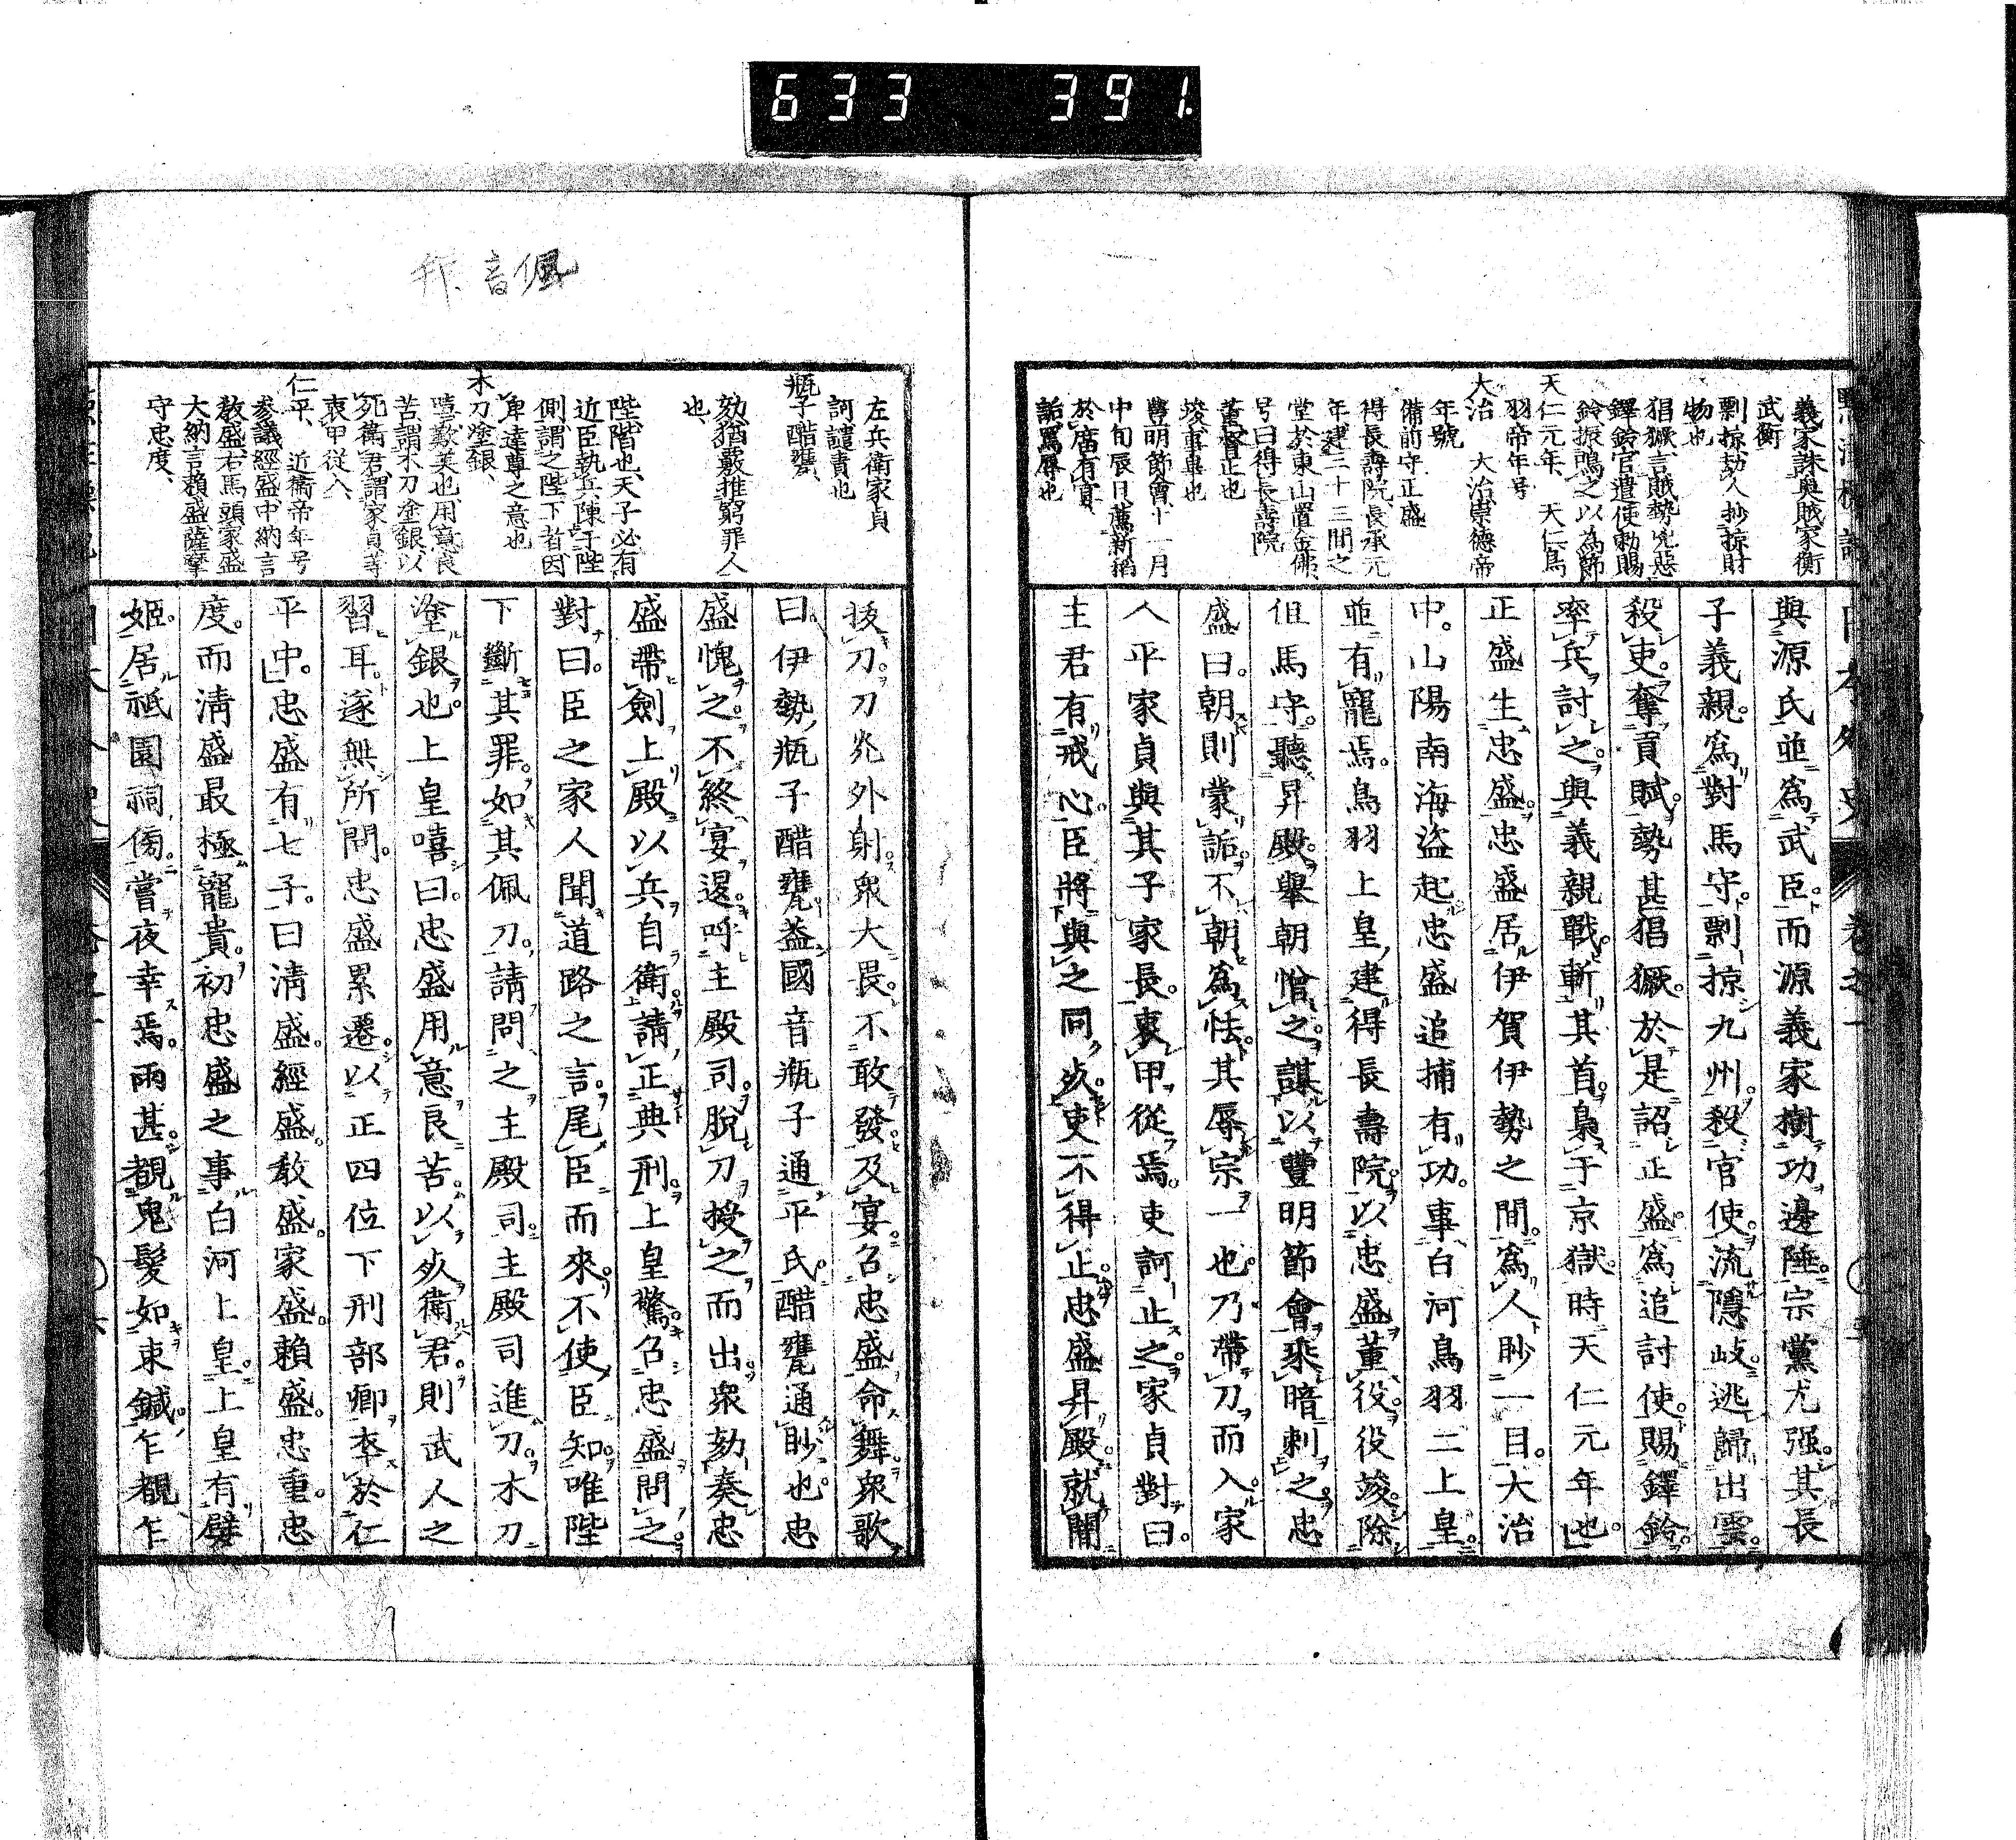 633 391
義家誅奧賊家衡
武衡
剽掠、劫人抄掠財
物也
猖獗、言賊勢兇惡
鐸鈴、官遣使勅賜
鈴振鳴之以為節
天仁元年、天仁鳥
羽帝年号
大治 大治崇德帝
年號
備前守正盛
得長壽院、長承元
年、建三十三間之
堂於東山置金佛、
号曰得長壽院
董督正也
竣、事畢也
豐明節會、十一月
中旬辰日、薦新稻
於席有宴、
詬罵辱也
與源氏並爲武臣而源義家樹功邊陲。宗黨尤强。其長
子義親。爲對馬守。剽掠九州。殺官使。流隱岐。逃歸出雲。
殺吏。奪貢賦。勢甚猖獗。於是詔正盛。爲追討使。賜鐸鈴。
率兵討之。與義親戰。斬其首。梟于京獄。時天仁元年也。
正盛生忠盛。忠盛居伊賀伊勢之間。爲人眇一目。大治
中。山陽南海盜起忠盛追捕有功。事白河鳥羽二上皇。
並有寵焉。鳥羽上皇、建得長壽院。以忠盛董役。役竣。除
但馬守。聽昇殿。舉朝憎之。謀以豐明節會。乘暗刺之。忠
盛曰。朝則蒙詬。不朝爲怯。其辱宗一也。乃帶刀而入。家
人平家貞與其子家長。裹甲從焉。吏訶止之。家貞對曰。
主君有戒心。臣將與之同死。吏不得止。忠盛昇殿。就闇
左兵衛家貞
訶譴責也
瓶子醋甕、
劾、猶覈推窮罪人
也、
陛、階也、天子必有
近臣執兵、陳于陛
側、謂之陛下者、因
卑達尊之意也
木刀塗銀、
嘻、歎美也、用意良
苦、謂木刀塗銀、以
死衛君、謂家貞等
裹甲從入、
仁平、近衛帝年号
參議經盛中納言
敎盛、右馬頭家盛
大納言賴盛、薩摩
守忠度、
拔刀。刀光外射。衆大畏。不敢發。及宴。召忠盛命舞。衆歌
曰。伊勢瓶子醋甕。蓋國音瓶子通平氏。醋甕通眇也。忠
盛愧之。不終宴。退。呼主殿司。脫刀授之而出。衆劾奏忠
盛帶劍上殿以兵自衛。請正典刑。上皇驚。召忠盛問之。
對曰。臣之家人聞道路之言。尾臣而來。不使臣知。唯陛
下斷其罪。如其佩刀。請問之主殿司。主殿司進刀。木刀
塗銀也。上皇嘻曰。忠盛用意良苦。以死衛君。則武人之
習耳。遂無所問。忠盛累遷。以正四位下刑部卿。卒於仁
平中。忠盛有七子。曰淸盛。經盛。敎盛。家盛。賴盛。忠重。忠
度。而淸盛最極寵貴。初忠盛之事白河上皇。上皇有嬖
姬。居祗園祠傍。嘗夜幸焉。雨甚。覩鬼髮如束鍼。乍覩乍